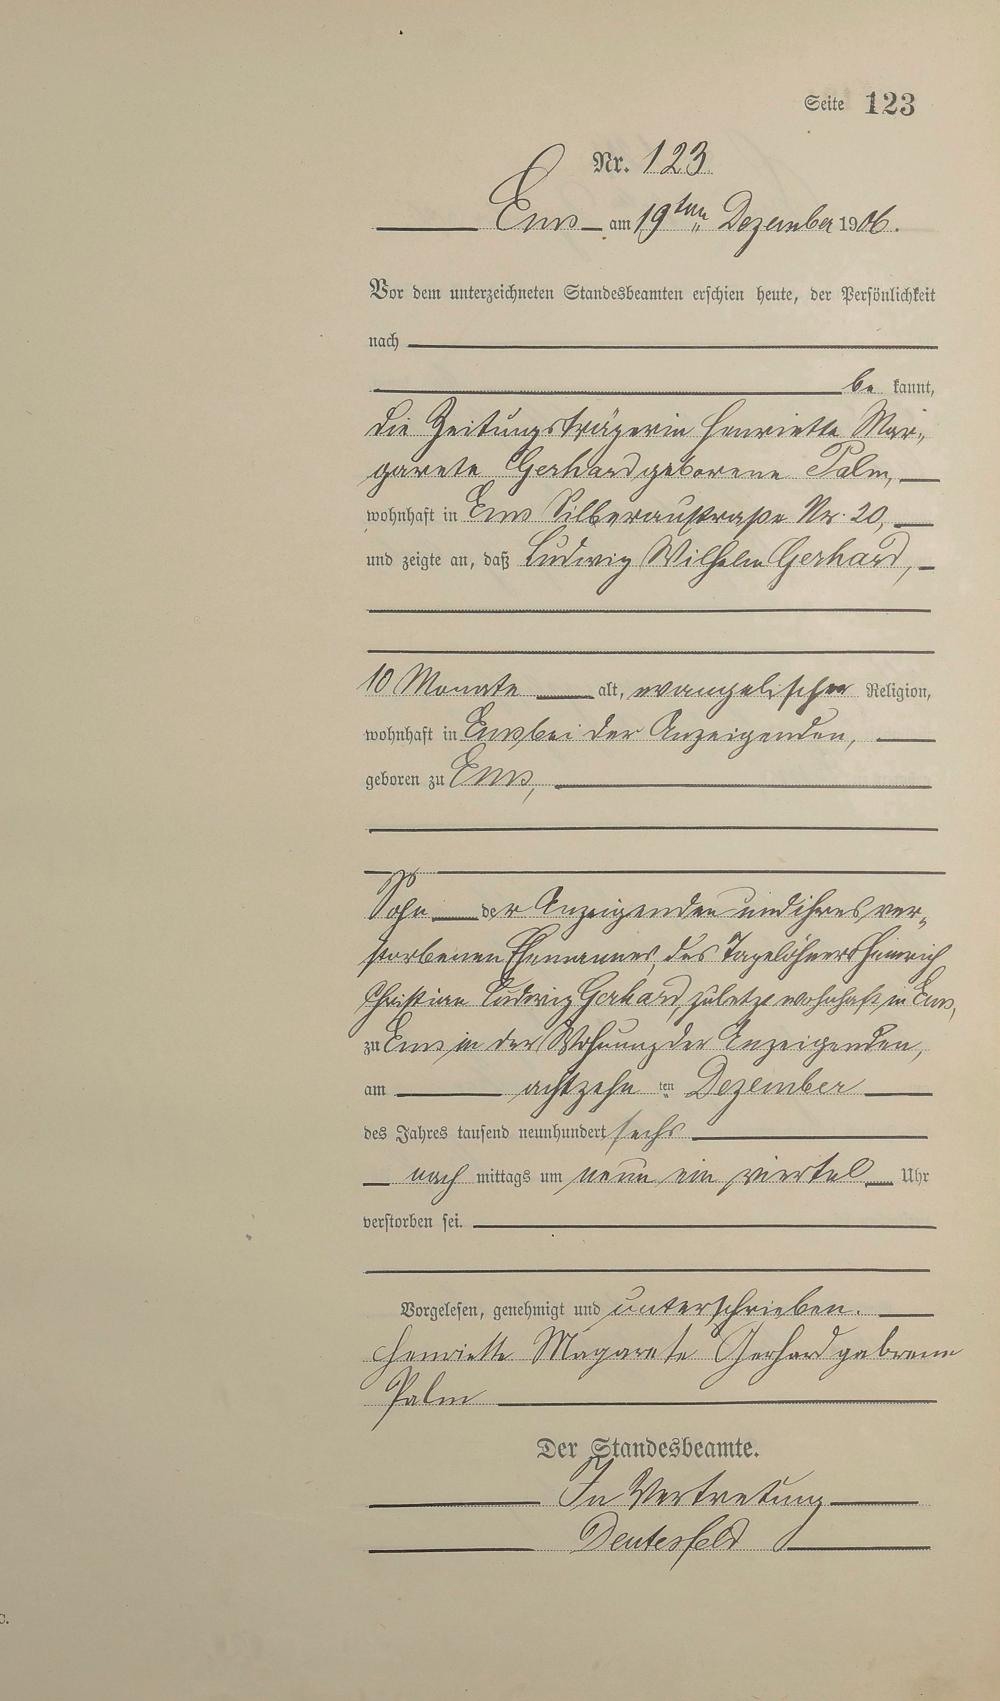 Seite 123
Nr. 123.
Ems am 19ten Dezember 1906.
Vor dem unterzeichneten Standesbeamten erschien heute, der Persönlichkeit
nach
be kannt,
die Zeitungsträgerin Henriette Mar„
garete Gerhard geborene Palm,
wohnhaft in Ems Silberaustraße Nr. 20,
und zeigte an, daß Ludwig Wilhelm Gerhard,
10 Monate alt, evangelischer Religion,
wohnhaft in Ems bei der Anzeigenden,
geboren zu Ems,
Sohn der Anzeigenden und ihres ver„
storbenen Ehemannes, des Tagelöhners Heinrich
Christian Ludwig Gerhard, zuletzt wohnhaft in Ems,
zu Ems in der Wohnung der Anzeigenden,
am achtzehn ten Dezember
des Jahres tausend neunhundert sechs
nach mittags um neun ein viertel Uhr
verstorben sei.
Vorgelesen, genehmigt und unterschrieben.
Henriette Magarete Gerhard gebrene
Palm
Der Standesbeamte.
In Vertretung
C.